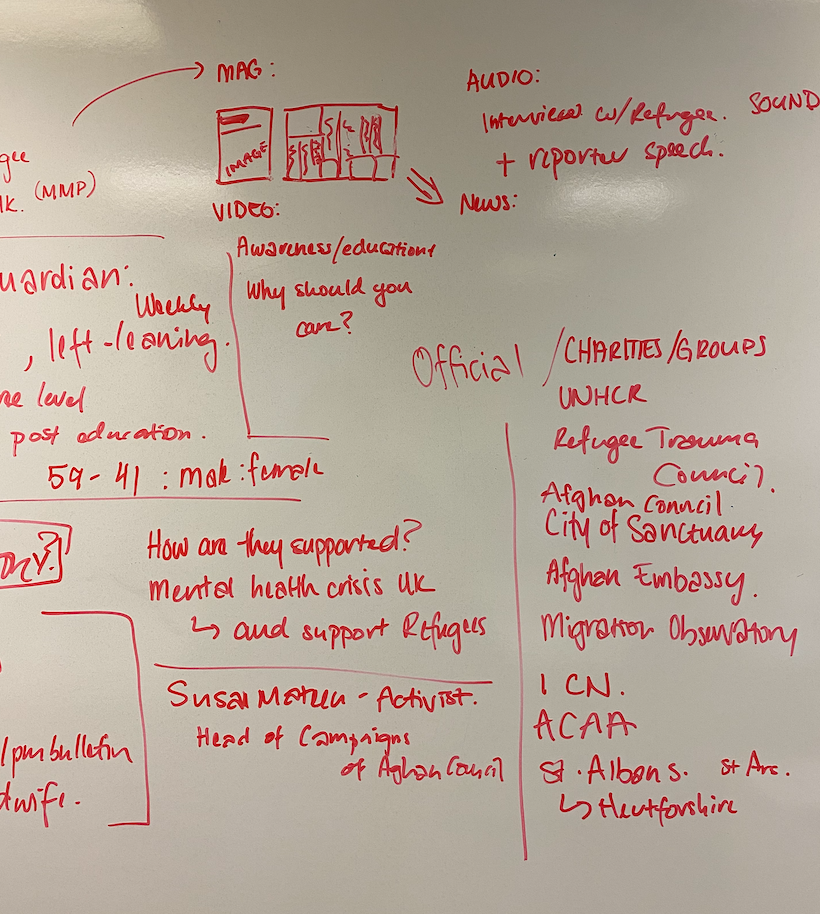 MAG:
IMAGE
AUDIO:
Interview w/Refugee. SOUND
+ reporter speech.
gee
(MMP)
VIDEO:
Awareness/education
Why should you
care?
News:
uardian:
Weekly
, left-leaning.
level
post education.
59-41 : male:female
Official /CHARITIES/GROUPS
UNHCR
Refugee Trauma
Council.
Afghan Council.
City of Sanctuary
Afghan Embassy.
Migration Observatory
ICN.
ACAA
St. Albans.
↳ Heutforshire
How are they supported?
Mental health crisis UK
↳ and support Refugees
Susan - Activist.
Head of Campaigns
of Aghan Council
/pm bulletin
dwife.